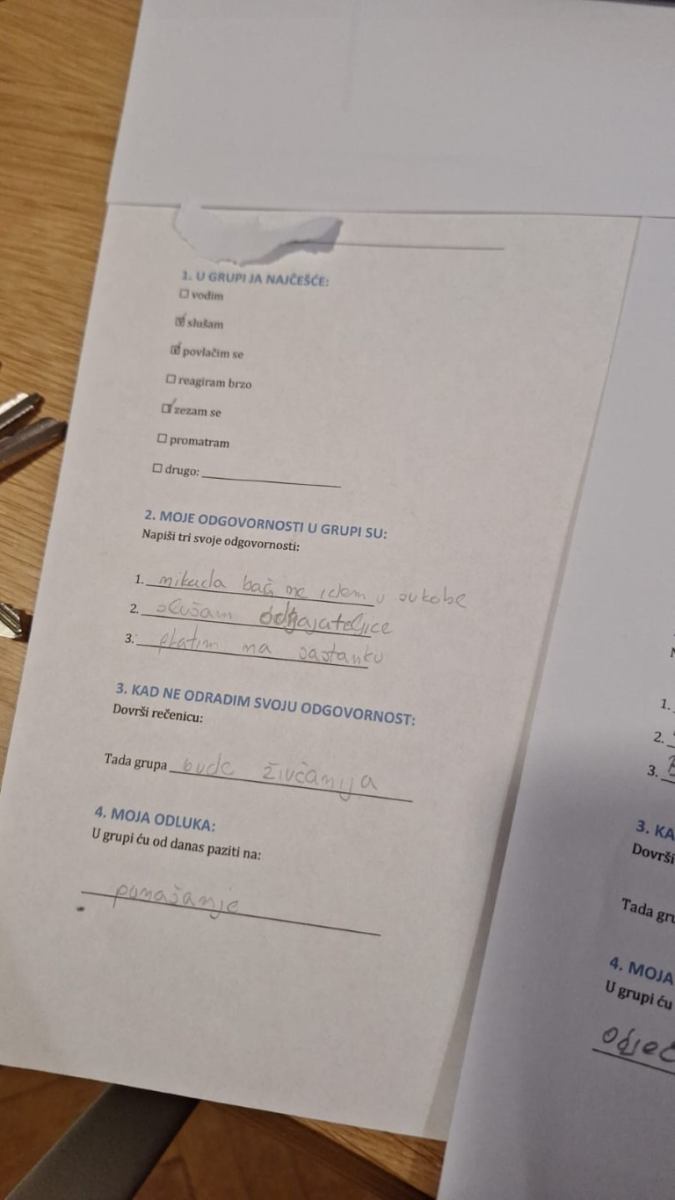 1. U GRUPI JA NAJČEŠĆE:
☐ vodim
☑ slušam
☑ povlačim se
☐ reagiram brzo
☑ zezam se
☐ promatram
☐ drugo:
2. MOJE ODGOVORNOSTI U GRUPI SU:
Napiši tri svoje odgovornosti:
1. nikada baš ne idem u sukobe
2. slušam odgajateljice
3. pratim na sastanku
3. KAD NE ODRADIM SVOJU ODGOVORNOST:
Dovrši rečenicu:
Tada grupa bude živčanija
4. MOJA ODLUKA:
U grupi ću od danas paziti na:
ponašanje
1.
2.
3.
3. KA
Dovrši
Tada gru
4. MOJA
U grupi ću
odjeć